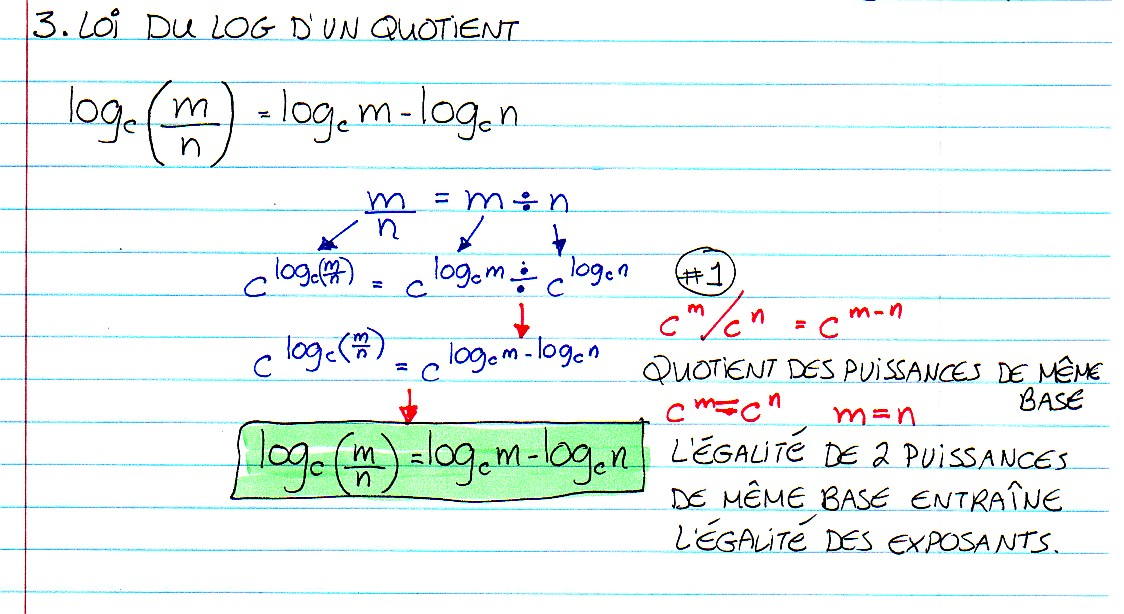 3. LOI DU LOG D'UN QUOTIENT
log_c (m/n) = log_c m - log_c n
m/n = m ÷ n
c^(log_c(m/n)) = c^(log_c m) ÷ c^(log_c n)
#1
c^m / c^n = c^(m-n)
c^(log_c(m/n)) = c^(log_c m - log_c n)
QUOTIENT DES PUISSANCES DE MÊME
BASE
c^m = c^n m = n
log_c (m/n) = log_c m - log_c n
L'ÉGALITÉ DE 2 PUISSANCES
DE MÊME BASE ENTRAÎNE
L'ÉGALITÉ DES EXPOSANTS.